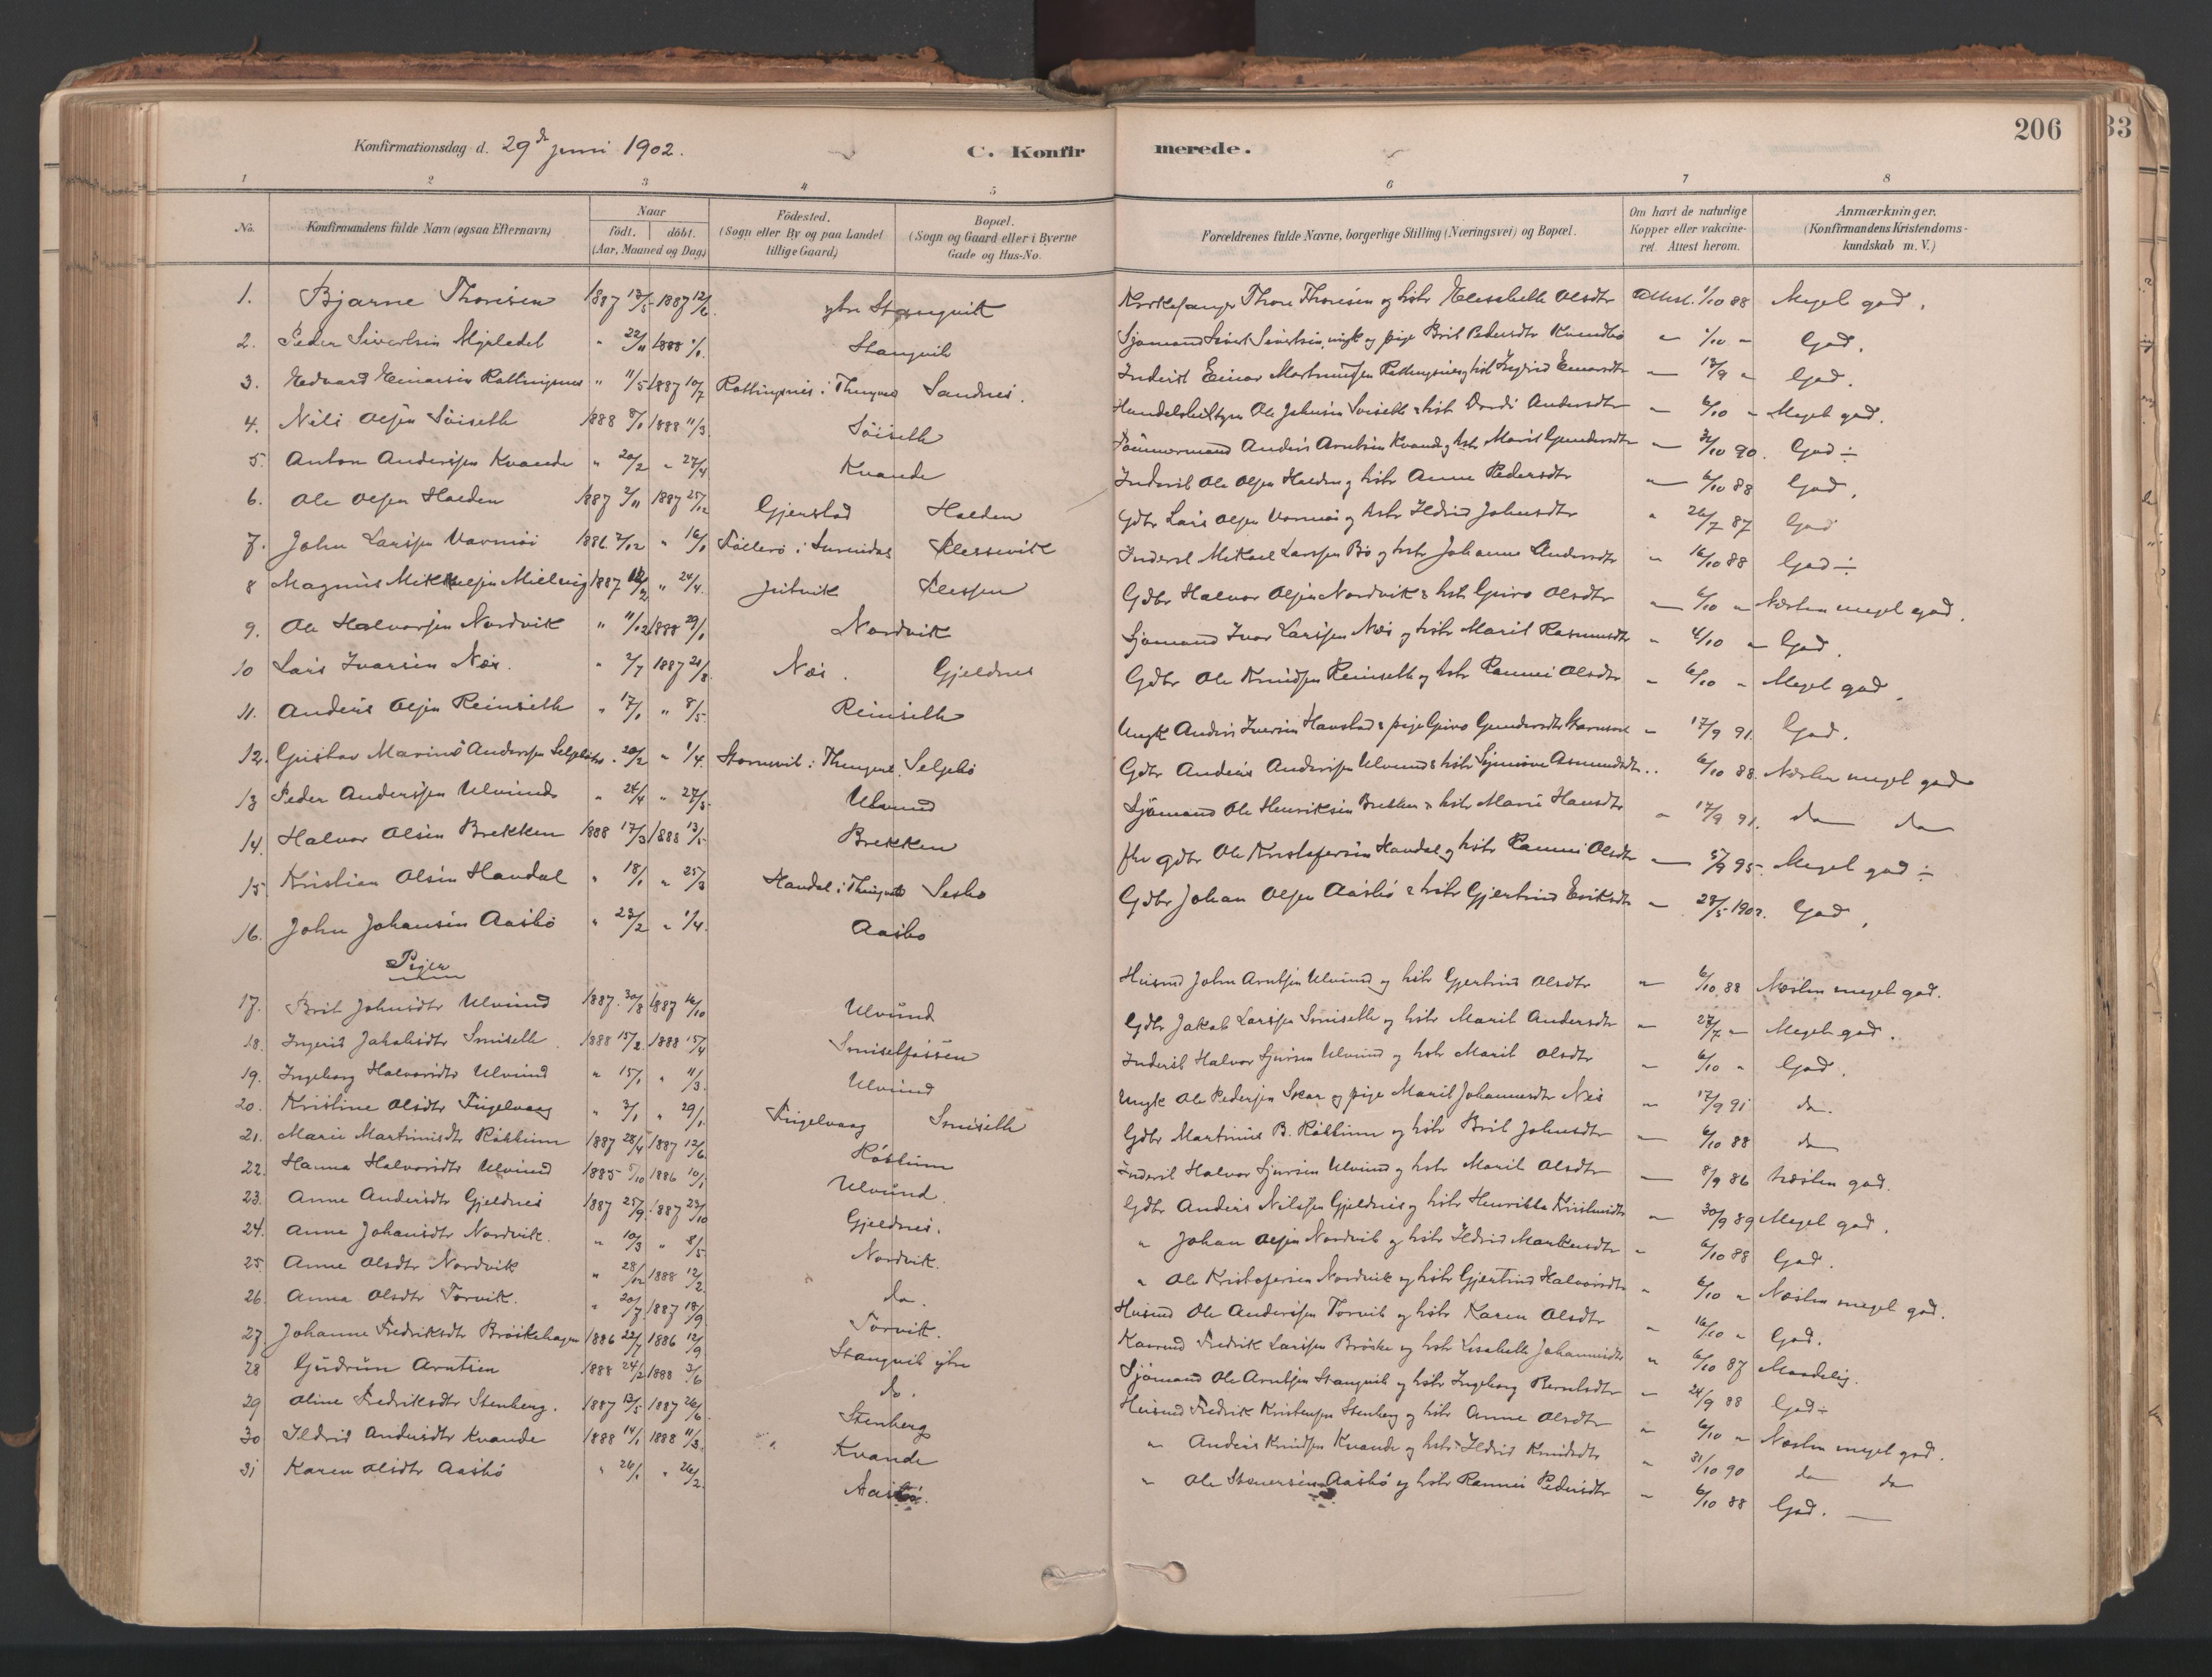 Konfirmationsdag d. 29de juni 1902.
C. Konfirmerede.
206
33
1 2 3 4 5 6 7 8
No.
Konfirmandens fulde Navn (ogsaa Efternavn)
Naar
födt. döbt.
(Aar, Maaned og Dag)
Födested.
(Sogn eller By og paa Landet
tillige Gaard)
Bopæl.
(Sogn og Gaard eller i Byerne
Gade og Hus-No.
Forældrenes fulde Navne, borgerlige Stilling (Næringsvei) og Bopæl.
Om havt de naturlige
Kopper eller vakcine-
ret. Attest herom.
Anmærkninger.
(Konfirmandens Kristendoms-
kundskab m. V.)
1. Bjarne Thoresen 1887 13/5 1887 12/6 ytre Stangvik Kirkesanger Thore Thoresen og hstr Elisabeth Olsdtr Attest. 1/10 88 Meget god.
2. Peder Sivertsen " 22/11 1888 1/1 Stangvik Sjømand Sivert Sivertsen, ungk og pige Brit Pedersdtr " 1/10 " God.
3. Edvard Einarsen " 11/5 1887 10/7 Sandnes. Inderst Einar " 13/9 " God.
4. Nils Olsen Söiseth 1888 8/1 1888 11/3 Söiseth Ole Johnsen Söiseth & hstr Dordi Andersdtr " 6/10 " Meget god.
5. Anton Anderssen Kvande " 20/2 " 27/4 Kvande Tömmermand Anders Arntsen Kvande og hstr Marit Gundersdtr " 31/10 90. God ÷
6. Ole Olsen Halden 1887 2/11 1887 25/12 Gjerstad Halden Inderst Ole Olsen Halden og hstr Anne Pedersdtr " 6/10 88 God.
7. John Larssen 1886 2/12 " 16/1 i Surendal Flessevik Gdbr Lars Olsen og hstr Ildrid Johnsdtr " 26/7 87 God
8 Magnus Mikkelsen 1887 " 24/4. Flessen Inderst Mikael Larssen Bö og hstr Johanne Andersdtr " 16/10 88 God ÷
9. Ole Halvorsen Nordvik " 11/12 1888 29/1 Nordvik Gdbr Halvor Olsen Nordvik & hstr Guro Olsdtr " 6/10 " Næsten meget god.
10 Lars Ivarsen Næs. " 2/7 1887 21/8. Næs. Gjeldnes Sjømand Ivar Larssen Næs og hstr Marit Rasmusdtr " 6/10 " God.
11. Anders Olsen Reinseth " 17/1 " 8/5. Reinseth Gdbr Ole Knudsen Reinseth og hstr Olsdtr " 6/10 " Meget god.
12. Gustav Marius Anderssen " 20/2 " 1/4. Seljebö Ungk Anders Iversen & pige Guro Gundersdtr " 17/9 91. God.
13 Peder Anderssen Ulvund " 24/4 " 27/5 Ulvund Gdbr Anders Anderssen Ulvund & hstr Asmundsdtr " 6/10 88. Næsten meget god
14. Halvor Olsen Brekken 1888 17/3 1888 13/5 Brekken Sjømand Ole Henriksen Brekken & hstr Marie Hansdtr " 17/9 91. do do
15 Kristian Olsen Handal " 18/1 " 25/3 Handal i Sesbö fhv gdbr Ole Kristofersen Handal og hstr Olsdtr " 5/9 95 Meget god ÷
16. John Johansen Aasbö " 23/2 " 1/4. Aasbö Gdbr Johan Olsen Aasbö & hstr Gjertrud Eriksdtr " 28/5 1902. God.
Piger
17. Brit Johnsdtr Ulvund 1887. 30/8 1887 16/10 Ulvund Husmd John Arntsen Ulvund og hstr Gjertrud Olsdtr " 6/10 88 Næsten meget god.
18. Ingerid Jakobsdtr Smiseth 1888 15/2. 1888 15/4 Smisetfossen Gdbr Jakob Larssen Smiseth og hstr Marit Andersdtr " 27/7 " Meget god.
19. Ingeborg Halvorsdtr Ulvund " 15/1 " 11/3. Ulvund Inderst Halvor Sjursen Ulvund og hstr Marit Olsdtr " 6/10 " God.
20. Kristine Olsdtr Fuglevaag " 3/1 " 29/1. Fuglevaag Smiseth Ungk Ole Pedersen Skar og pige Marit Johannesdtr Næs " 17/9 91 do.
21. Marie Martinusdtr Röklum 1887 28/4 1887 12/6 Röklum Gdbr Martinus B. Röklum og hstr Brit Johnsdtr " 6/10 88 do
22. Hanna Halvorsdtr Ulvund 1885 5/10 1886 10/1 Ulvund. Inderst Halvor Sjursen Ulvund og hstr Marit Olsdtr " 8/9 86 Næsten god.
23. Anne Andersdtr Gjeldnes 1887 25/9. 1887 23/10 Gjeldnes. Gdbr Anders Nilssen Gjeldnes og hstr Henrikka " 30/9 89 Meget god.
24. Anne Johansdtr Nordvik. " 10/3 " 8/5. Nordvik. " Johan Olsen Nordvik og hstr Ildrid Markusdtr " 6/10 88 God.
25. Anne Olsdtr Nordvik " 28/12 1888 12/2. do. " Ole Kristofersen Nordvik og hstr Gjertrud Halvorsdtr " 6/10 " Næsten meget god.
26. Anna Olsdtr Torvik. " 20/7 1887 18/9 Torvik. Husmd Ole Anderssen Torvik og hstr Karen Olsdtr " 16/10 " God.
27. Johanne Fredriksdtr Bröskehagen 1886 22/7 1886 12/9 Stangvik ytre Fredrik Larssen Bröske og hstr Lisabeth Johannesdtr " 6/10 87 Maadelig.
28 Gudrun Arntsen 1888 24/2 1888 3/6 do. Sjømand Ole Arntsen Stangvik og hstr Ingeborg Berntsdtr " 24/9 88 God ÷
29 Oline Fredriksdtr Stenberg. 1887 13/5 1887 26/6 Stenberg Husmd Fredrik Kristensen Stenberg og hstr Anne Olsdtr " 6/10 " Næsten meget god.
30 Ildrid Andersdtr Kvande 1888 14/1 1888 11/3. " Kvande " Anders Knudsen Kvande og hstr Ildrid Knudsdtr " 31/10 90 do do
31 Karen Olsdtr Aasbö " 24/1 " 26/2. Aasbö. " Ole Aasbö og hstr Pedersdtr " 6/10 88 God.